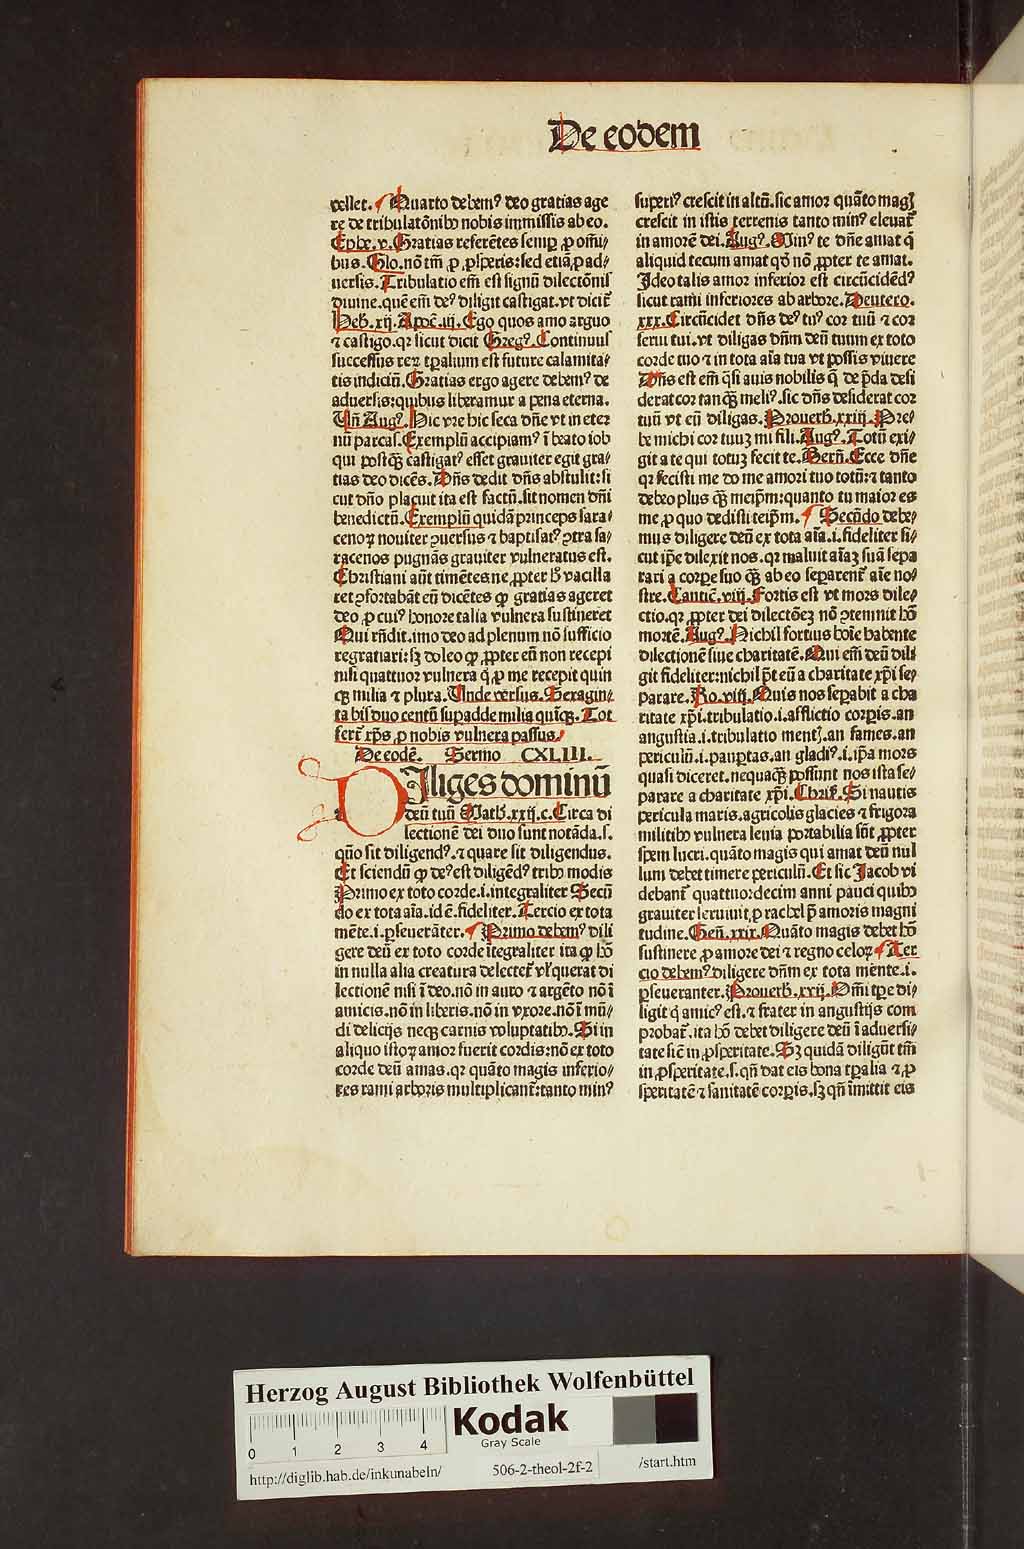 De eodem
vellet. Quarto debemꝰ deo gratias age
re de tribulatōnibꝰ nobis immissis ab eo.
Ephe. v. Gratias referētes semꝑ ꝓ omi⸗
bus. Glo. nō tm̄ ꝓ ꝓsperis: sed etiā ꝓ ad⸗
uersis. Tribulatio em̄ est signū dilectōnis
diuine. quē em̄ deꝰ diligit castigat. vt dicit̄
Heb. xij. Apoc̄. iij. Ego quos amo arguo
⁊ castigo. qr sicut dicit Gregꝰ. Continuus
successus reꝝ tꝑalium est future calamita⸗
tis indiciū. Gratias ergo agere debemꝰ de
aduersis: quibus liberamur a pena eterna.
Vn̄ Augꝰ. Hic vre hic seca dn̄e vt in eter
nū parcas. Exemplū accipiamꝰ ī beato iob
qui postꝙ̄ castigatꝰ esset grauiter egit gra⸗
tias deo dicēs. Dn̄s dedit dn̄s abstulit: si
cut dn̄o placuit ita est factū. sit nomen dn̄i
benedictū. Exemplū quidā princeps sara⸗
cenoꝝ nouiter ꝯuersus ⁊ baptisatꝰ ꝯtra sa⸗
racenos pugnās grauiter vulneratus est.
Christiani aūt timētes ne ꝓpter hͦ vacilla
ret ꝯfortabāt eū dicētes ꝙ gratias ageret
deo ꝓ cuiꝰ honore talia vulnera sustineret
Qui rn̄dit. imo deo ad plenum nō sufficio
regratiari: sꝫ doleo ꝙ ꝓpter eū non recepi
nisi quattuor vulnera q̄ ꝓ me recepit quin
qꝫ milia ⁊ plura. Vnde versus. Sexagin⸗
ta bis duo centū supadde milia quīqꝫ. Tot
fert̄ xp̄s ꝓ nobis vulnera passus.
De eodē. Sermo CXLIII.
DIliges dominū
deū tuū Math. xxij. c. Circa di
lectionē dei duo sunt notāda. s.
qūo sit diligendꝰ. ⁊ quare sit diligendus.
Et sciendū ꝙ deꝰ est diligēdꝰ tribꝰ modis
Primo ex toto corde. i. integraliter Secū
do ex tota aīa. id ē. fideliter. Tercio ex tota
mēte. i. ꝑseuerāter. Primo debemꝰ dili
gere deū ex toto corde ītegraliter ita ꝙ hō
in nulla alia creatura delectet̄ vl' querat di
lectionē nisi ī deo. nō in auro ⁊ argēto nō ī
amicis. nō in liberis. nō in vxore. nō ī mū⸗
di delicijs neqꝫ carnis voluptatibꝰ. Si in
aliquo istoꝝ amor fuerit cordis: nō ex toto
corde deū amas. qr quāto magis inferio⸗
res rami arboris multiplicant̄: tanto minꝰ
superiꝰ crescit in altū. sic amor quāto magꝭ
crescit in istis terrenis tanto minꝰ eleuat̄
in amorē dei. Augꝰ. Minꝰ te dn̄e amat q̄
aliquid tecum amat qd̄ nō ꝓpter te amat.
Ideo talis amor inferior est circūcidēdꝰ
sicut rami inferiores ab arbore. Deutero.
xxx. Circūcidet dn̄s deꝰ tuꝰ cor tuū ⁊ cor
semi tui. vt diligas dn̄m deū tuum ex toto
corde tuo ⁊ in tota aīa tua vt possis viuere
Dn̄s est em̄ q̄si auis nobilis q̄ de p̄da desi
derat cor tanꝙ̄ meliꝰ. sic dn̄s desiderat cor
tuū vt eū diligas. Prouerb. xxiij. Pre⸗
be michi cor tuuꝫ mi fili. Augꝰ. Totū exi⸗
git a te qui totuꝫ fecit te. Bern̄. Ecce dn̄e
qr fecisti me do me amori tuo totū: ⁊ tanto
debeo plus ꝙ̄ meip̄m: quanto tu maior es
me ꝓ quo dedisti teip̄m. Secūdo debe⸗
mus diligere deū ex tota aīa. i. fideliter si⸗
cut ip̄e dilexit nos. qr maluit aīaꝫ suā sepa
rari a corꝑe suo ꝙ̄ ab eo seꝑarent̄ aīe no⸗
stre. Cantic̄. viij. Fortis est vt mors dile⸗
ctio. qr ꝓpter dei dilectōeꝫ nō ꝯtemnit hō
mortē. Augꝰ. Nichil fortius hoīe habente
dilectionē siue charitatē. Qui em̄ deū dili
git fideliter: nichil p̄t eū a charitate xp̄i se⸗
parare. Ro. viij. Quis nos seꝑabit a cha
ritate xp̄i. tribulatio. i. afflictio corꝑis. an
angustia. i. tribulatio mentꝭ. an fames. an
periculū. i. pauꝑtas. an gladiꝰ. i. ip̄a mors
quasi diceret. nequaꝙ̄ possunt nos ista se⸗
parare a charitate xp̄i. Chris. Si nautis
pericula maris. agricolis glacies ⁊ frigora
militibꝰ vulnera leuia portabilia sūt ꝓpter
spem lucri. quāto magis qui amat deū nul
lum debet timere periculū. Et sic Jacob vi
debant̄ quattuordecim anni pauci quibꝰ
grauiter seruiuit ꝓ rachel p̄ amoris magni
tudine. Gen̄. xxix. Quāto magis debet hō
sustinere ꝓ amore dei ⁊ regno celoꝝ Ter
cio debemꝰ diligere dn̄m ex tota mente. i.
ꝑseueranter. Prouerb. xvij. Om̄i tꝑe di⸗
ligit q̄ amicꝰ est. ⁊ frater in angustijs com
probat̄. ita hō debet diligere deū ī aduersi⸗
tate sic̄ in ꝓsperitate. Sꝫ quidā diligūt tm̄
in ꝓsperitate. s. qn̄ dat eis bona tꝑalia ⁊ ꝓ
speritatē ⁊ sanitatē corꝑis. sꝫ qn̄ īmittit eis
Herzog August Bibliothek Wolfenbüttel
Kodak
Gray Scale
0 1 2 3 4
http://diglib.hab.de/inkunabeln/ 506-2-theol-2f-2 /start.htm